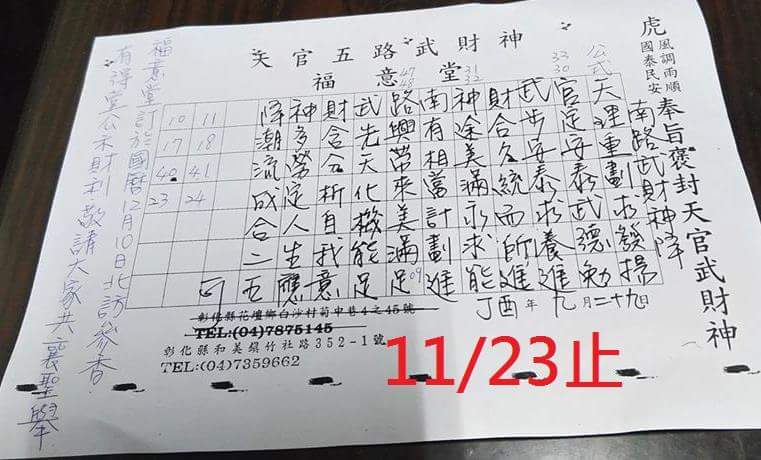 天官五路武財神
福意堂
虎
風調雨順
國泰民安
奉旨褒封天官武財神
南路武財神降
公式
33
30
31
32
天理重劃求發揚
官定安泰武德勉
武步安泰求養進
財合久統而所進
神途美滿永求能
南有相當計劃進
路興帶來美滿足
09
武先天化機能足
財含分析自我意
神多勞定人生應
降潮流成合二五
10 11
17 18
40 41
23 24
丁酉年九月二十九日
彰化縣花壇鄉白沙村菊中巷4之45號
TEL:(04)7875145
彰化縣和美鎮竹社路352-1號
TEL:(04)7359662
福意堂訂於國曆12月10日北訪參香
敬請大家共襄聖舉
11/23止